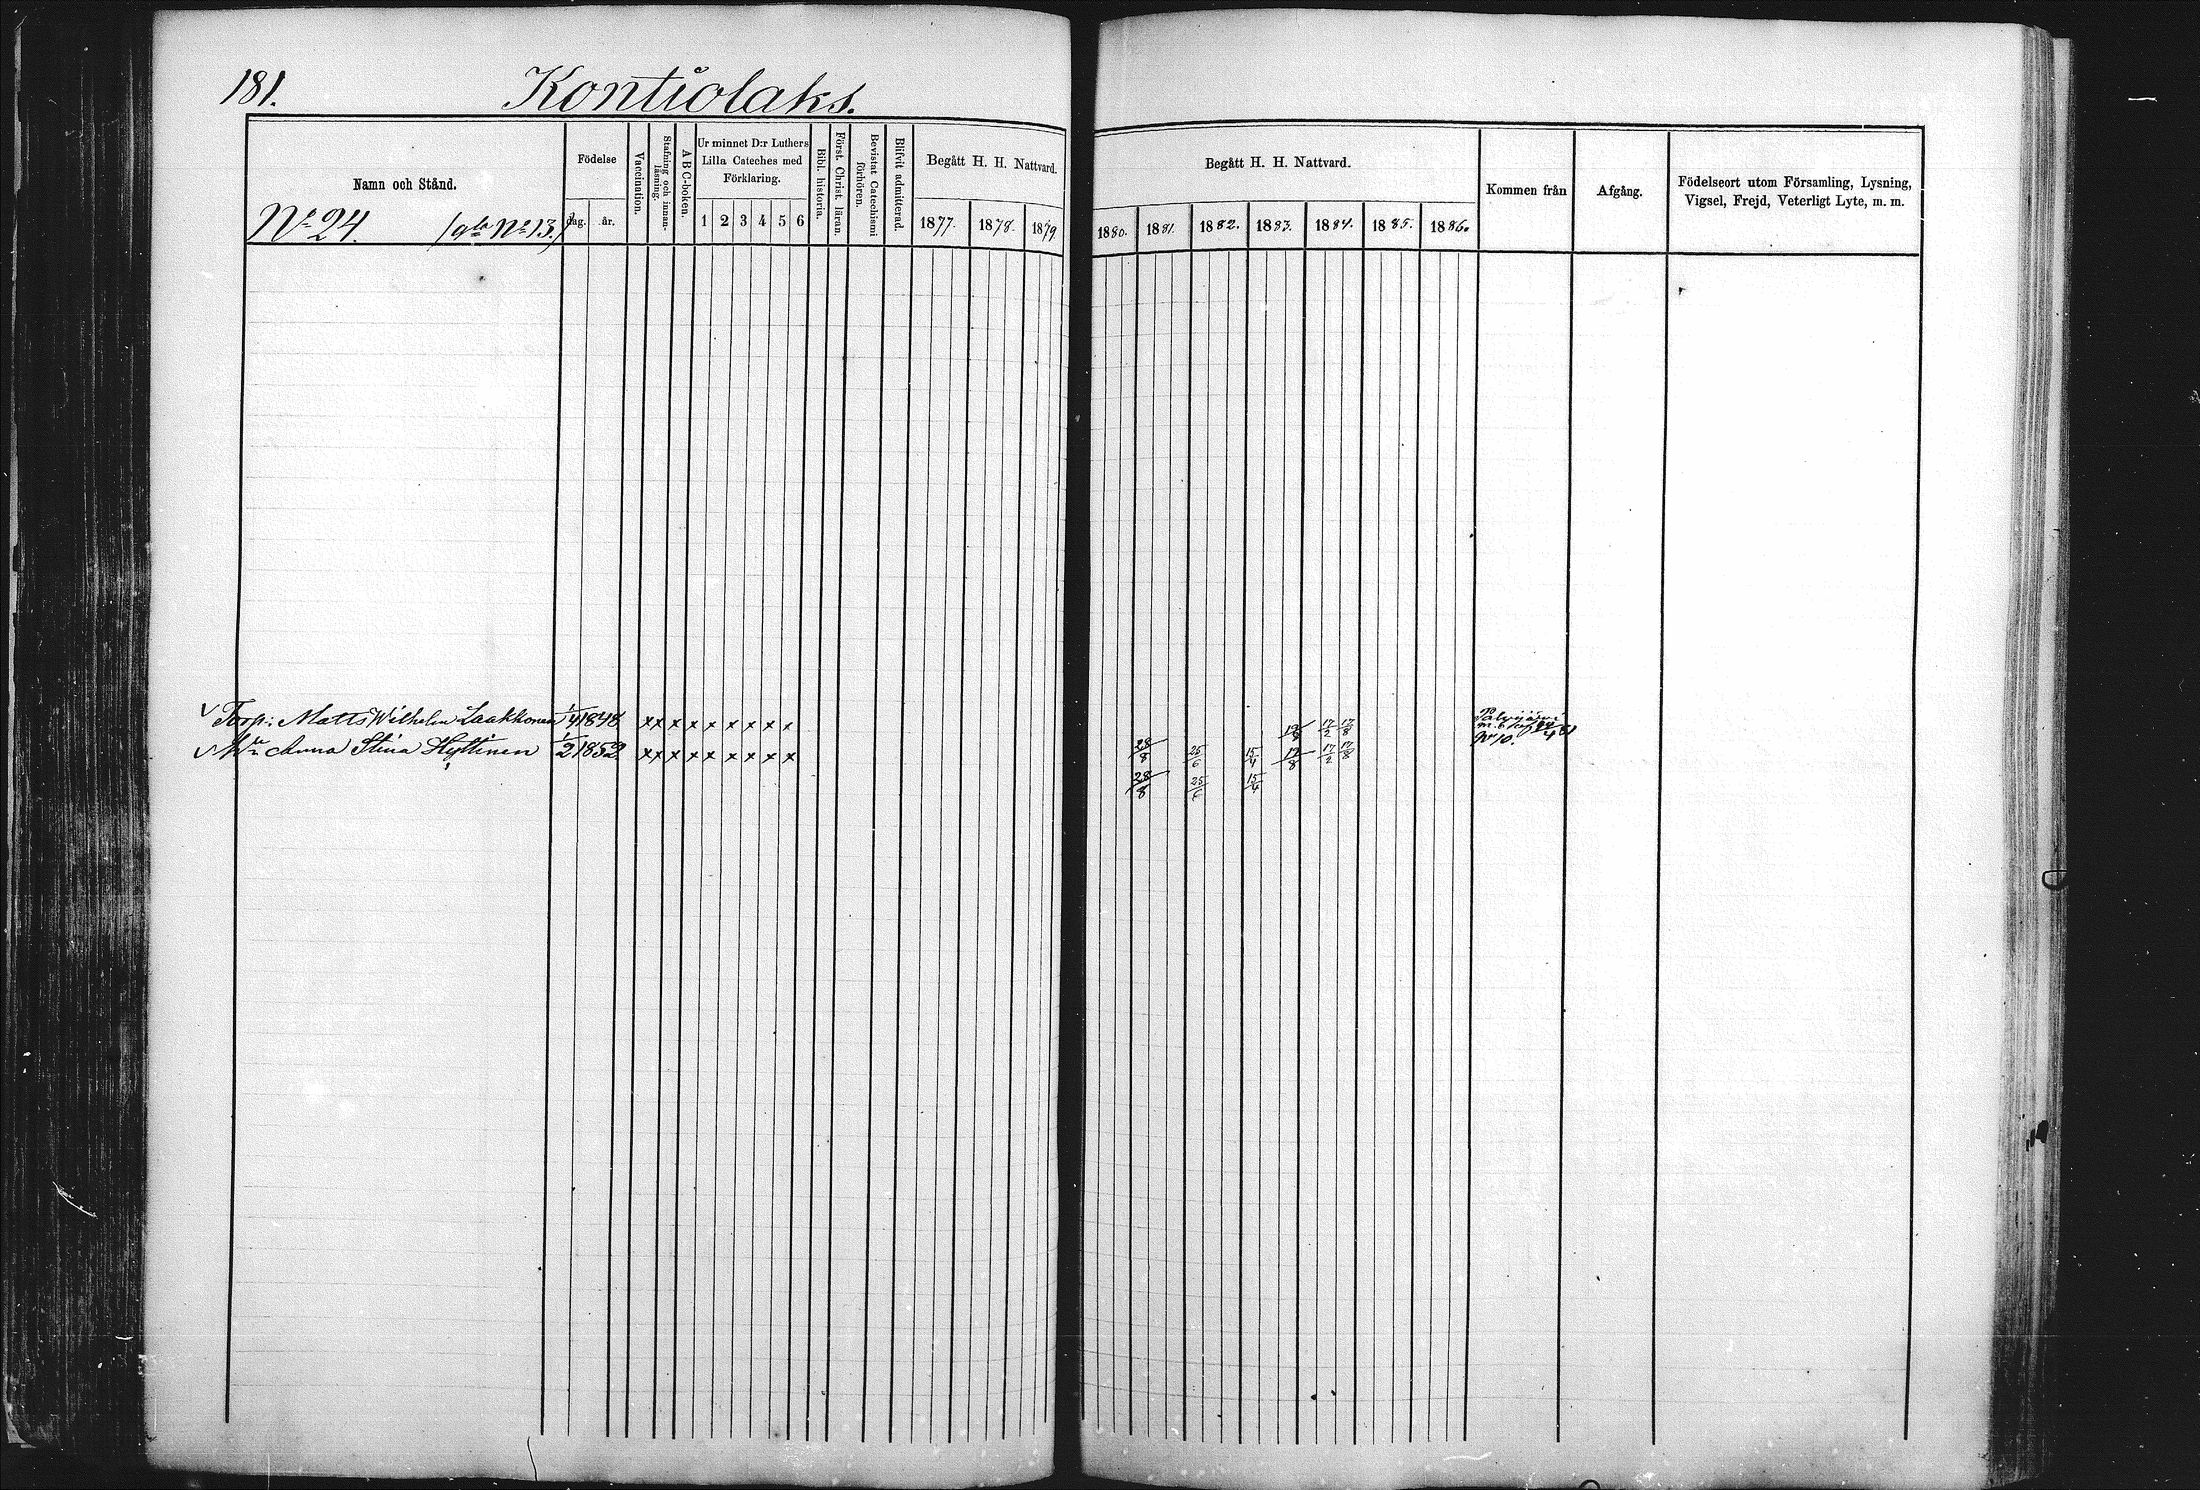 181. Kontiolaks.
Namn och Stånd.
Nº 24. (gla Nº 13.)
Födelse
dag. år.
Vaccination.
Stafning och innan-
läsning.
A B C-boken.
Ur minnet D:r Luthers
Lilla Cateches med
Förklaring.
1 2 3 4 5 6
Bibl. historia.
Först. Christ. läran.
Bevistat Catechismi
förhören.
Blifvit admitterad.
Begått H. H. Nattvard.
1877. 1878. 1879
Begått H. H. Nattvard.
1880. 1881. 1882. 1883. 1884. 1885. 1886.
Kommen från
Afgång.
Födelseort utom Församling, Lysning,
Vigsel, Frejd, Veterligt Lyte, m. m.
√ Torp: Matts Wilhelm Laakkonen 1/4 1848 x x x x x x x x x 12/8 17/2 17/8
√ Anna Stina Hyttinen 1/2 1852 x x x x x x x x x 28/8 25/6 15/4 12/8 17/2 17/8
28/8 25/6 15/4
Nº 10.